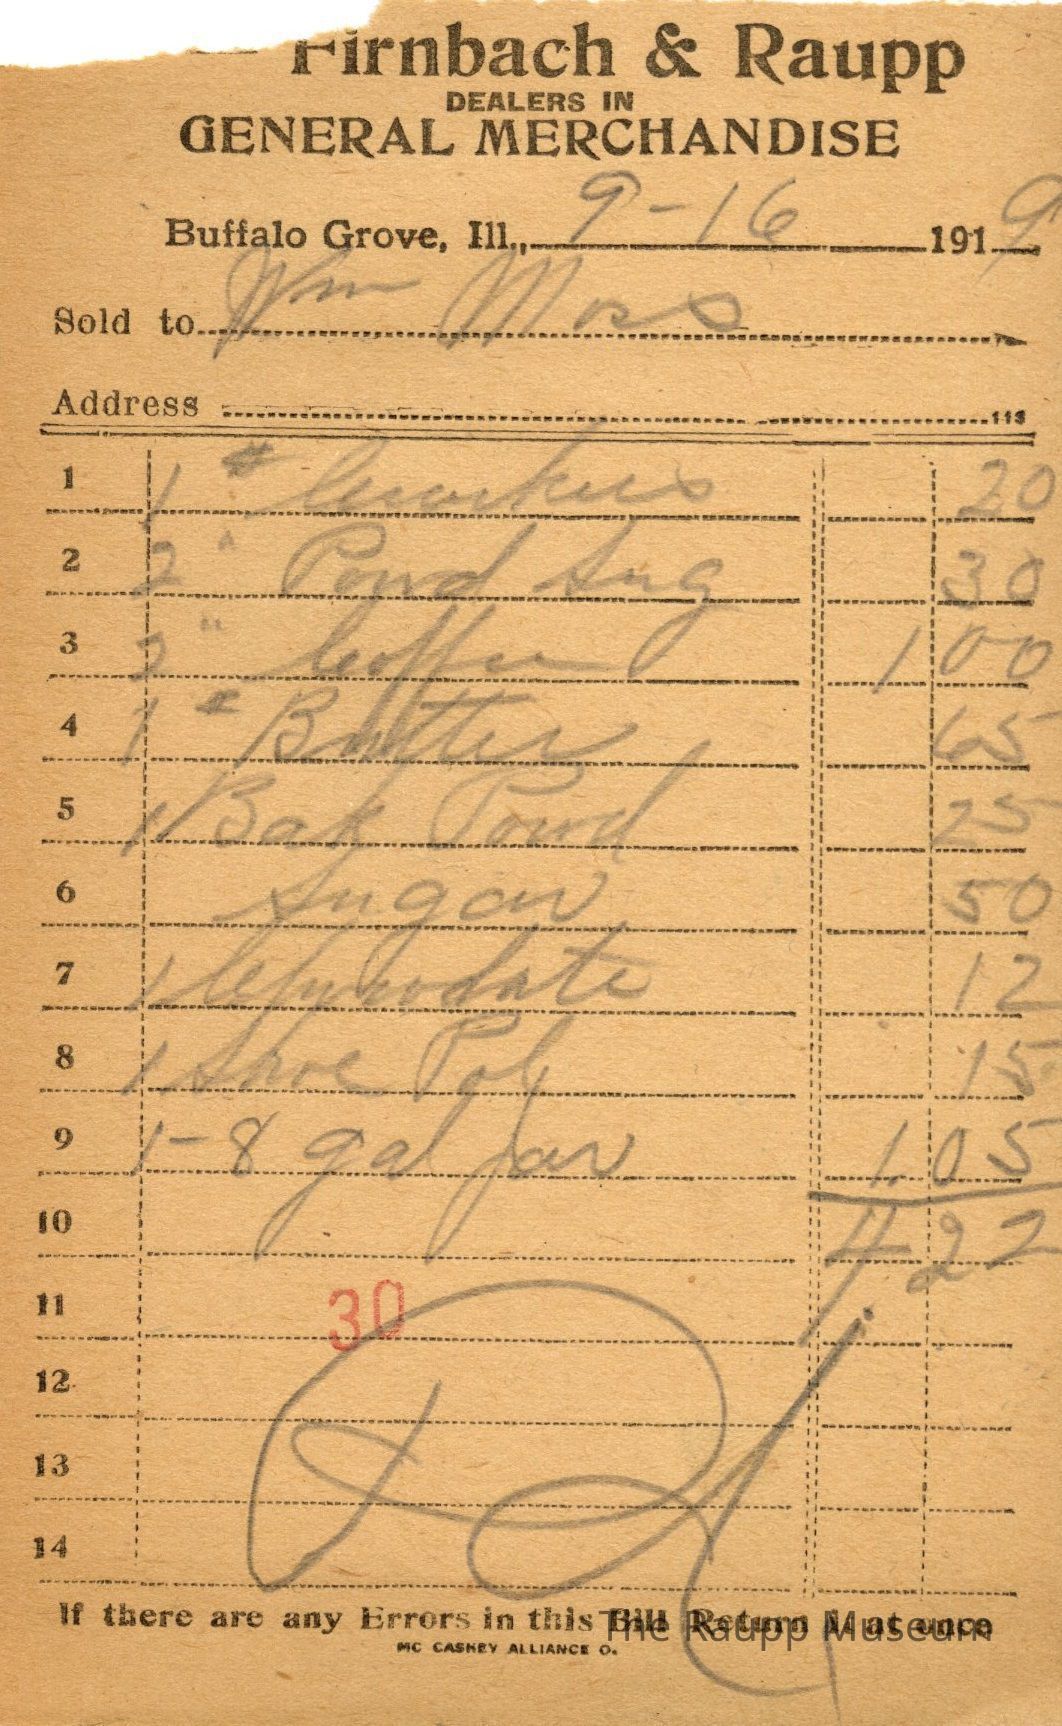 Firnbach & Raupp
DEALERS IN
GENERAL MERCHANDISE
Buffalo Grove, Ill., 9-16 1919
Sold to Wm Moss
Address 113
1 1 # Crackers 20
2 2 " Powd Sug 30
3 2 " Coffee 1 00
4 1 # Butter 65
5 1 Bak Powd 25
6 Sugar 50
7 1 12
8 1 Shoe Pol 15
9 1-8 gal Jar 1.05
10 4 22
11 30
12
13
14
If there are any Errors in this Bill Return it at once
The Raupp Museum
MC CASKEY ALLIANCE O.